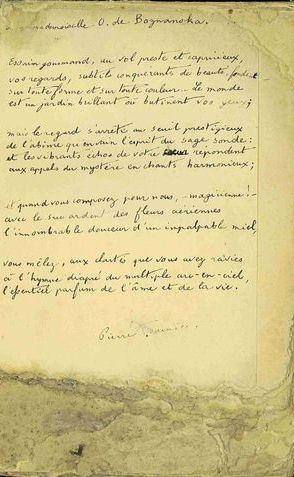 mademoiselle O. de Boznanska.
Essaim gourmand, au vol preste et capricieux,
vos regards, subtils conquérants de beauté, fondent
sur toute forme et sur toute couleur. Le monde
est un jardin brillant où butinent vos yeux;
mais le regard s'arrête au seuil prestigieux
de l'abîme qu'en vain l'esprit du sage sonde:
et les vibrants échos de votre répondent
aux appels du mystère en chants harmonieux;
et quand vous composez pour nous, — magicienne! —
avec le suc ardent des fleurs aériennes
l'innombrable douceur d'un impalpable miel,
vous mêlez, aux clartés que vous avez ravies
à l'hymne diapré du multiple arc-en-ciel,
l'essentiel parfum de l'âme et de la vie.
Pierre